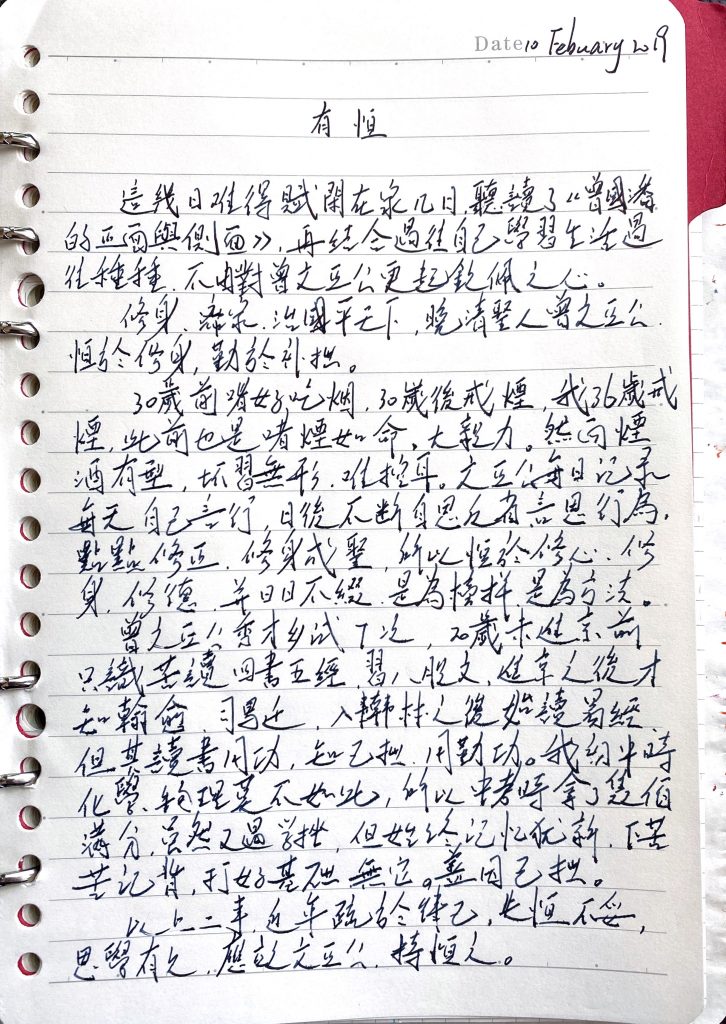 Date 10 Febuary 2019
有恒
這幾日难得賦閑在家几日聽讀了《曾國藩
的正面與側面》，再结合過往自己學習生活過
往種種，不由對曾文正公更起欽佩之心。
修身、齊家、治國平天下，晚清聖人曾文正公
恒於修身，勤於补拙。
30歲前嗜好吃烟，30歲後戒煙，我36歲戒
煙，此前也是嗜煙如命，大毅力。然而煙
酒有型，坏習無形，难控耳。文正公每日记录
每天自己言行，日後不断自思反省言思行為，
點點修正，修身成聖，所以恒於修心、修
身、修德，并日日不綴，是為榜样是為方法。
曾文正公秀才乡试7次，20歲未进京前
只識苦讀四書五經，習八股文，进京之後才
知韓愈、司馬迁，入翰林之後始讀易經
但其讀書用功，知己拙，用勤功。我初中時
化學、物理莫不如此，所以中考時拿了雙佰
满分，虽然又遇学挫，但始终记忆犹新，下苦
苦记背，打好基础無它。蓋因己拙。
以上二事，近年疏於律己，失恒不妥，
思學有之，應效文正公，持恒之。